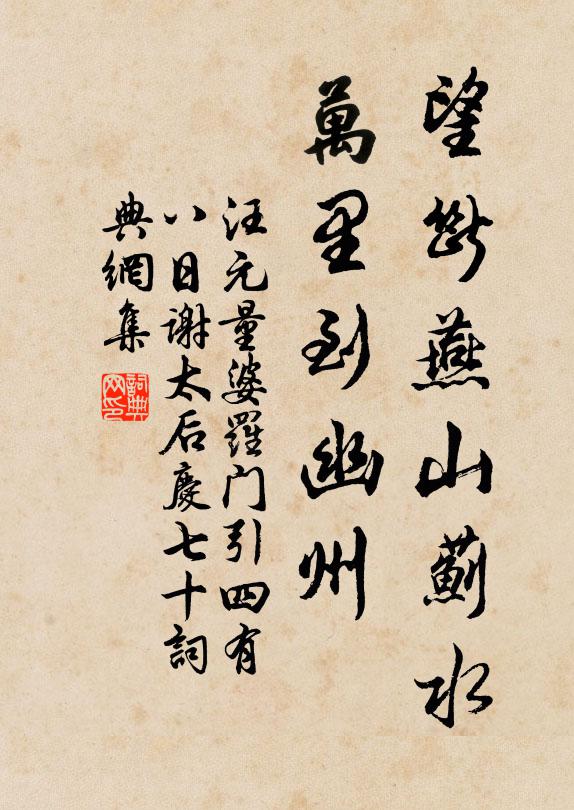 望斷燕山薊水
萬里到幽州
汪元量婆羅門引四有
八日謝太后慶七十詞
典網集
詞典網印